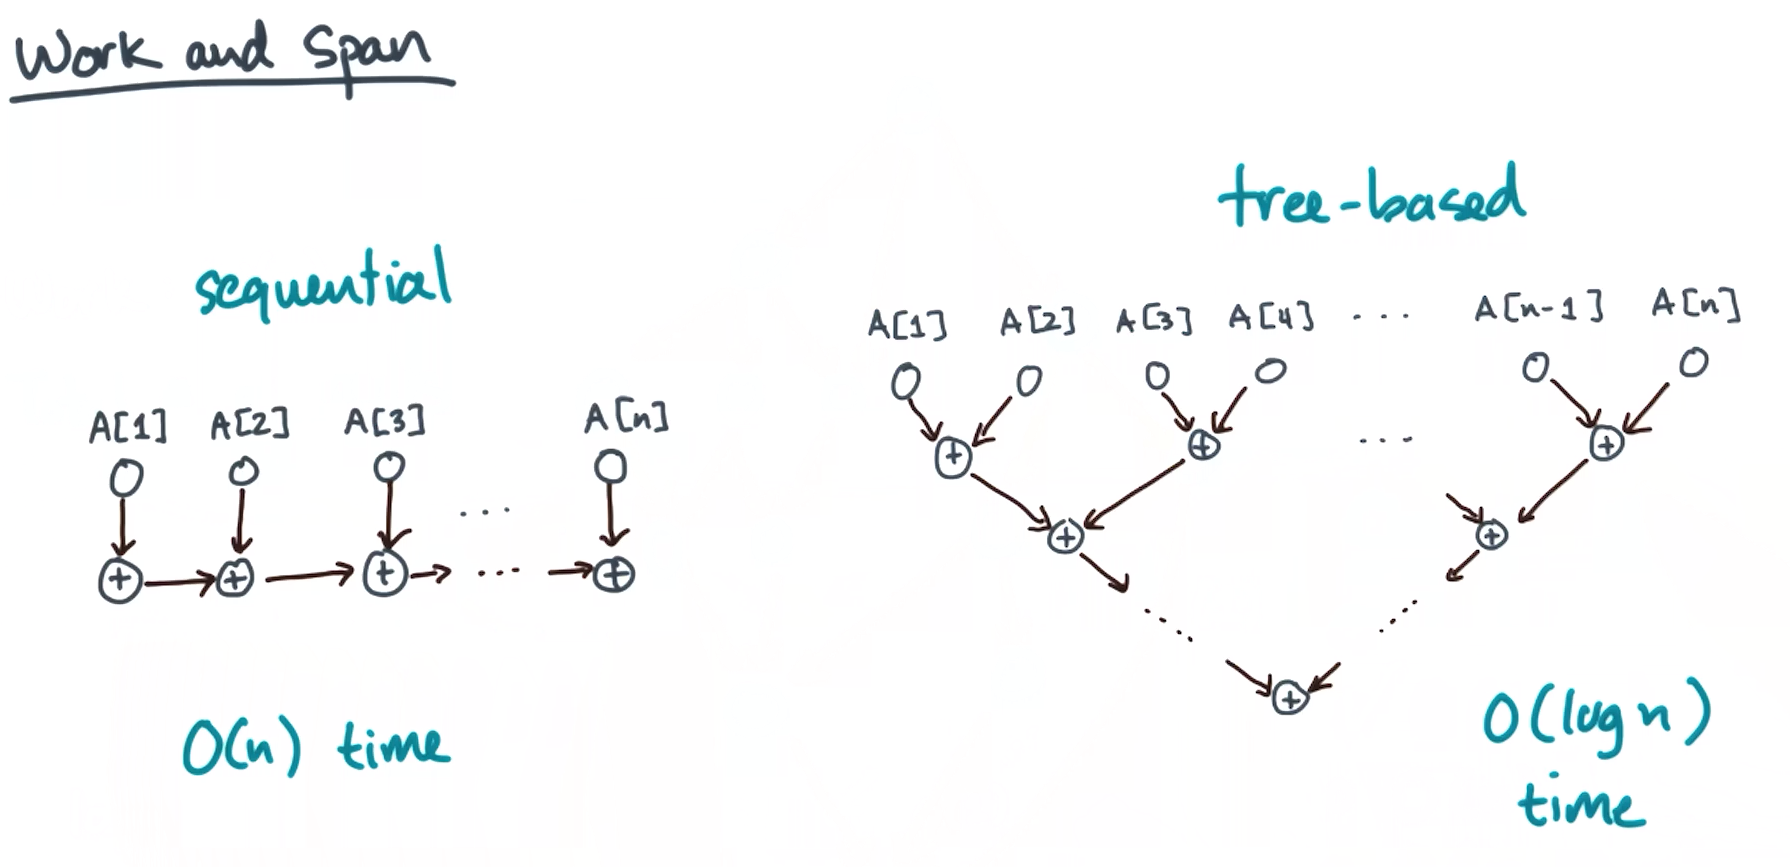 Work and Span
sequential
A[1] A[2] A[3] A[n]
...
+ + + ... +
O(n) time
tree-based
A[1] A[2] A[3] A[4] ... A[n-1] A[n]
+ + ... +
+ +
+
O(log n)
time